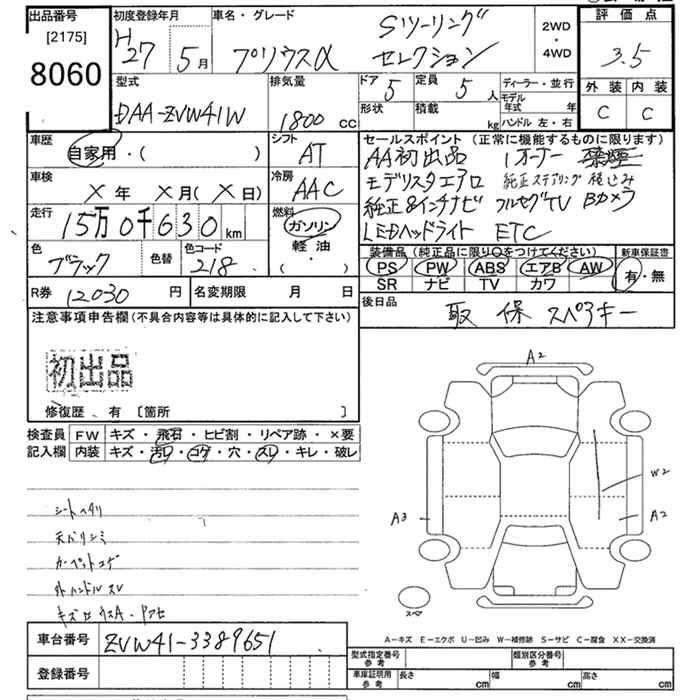 出品番号
[2175]
8060
初度登録年月
H27 5月
車名・グレード
プリウスα Sツーリング
セレクション
2WD
・
4WD
評価点
3.5
外装 内装
C C
型式
DAA-ZVW41W
排気量
1800 cc
ドア 5
定員 5人
形状
積載 kg
ディーラー・並行
モデル年式 年
ハンドル 左・右
車歴
自家用・( )
シフト
AT
車検
X年 X月(X日)
冷房
AAC
走行
15万0千630km
燃料
ガソリン
軽油
・( )
色
ブラック
色替
色コード
218
セールスポイント (正常に機能するものに限ります)
AA初出品 1オーナー
モデリスタエアロ 純正ステアリング 積込み
純正8インチナビ フルセグTV Bカメラ
LEDヘッドライト ETC
装備品 (純正品に限り○をつけてください)
PS PW ABS エアB AW
SR ナビ TV カワ
新車保証書
有・無
R券 12030円
名変期限 月 日
後日品
取 保 スペアキー
注意事項申告欄(不具合内容等は具体的に記入して下さい)
初出品
修復歴. 有 [箇所 ]
検査員
記入欄
FW キズ・飛石・ヒビ割・リペア跡・×要
内装 キズ・汚レ・コゲ・穴・スレ・キレ・破レ
シートヘタリ
天バリシミ
カーペットコゲ
外ハンドルスレ
A2
W2
A3
A2
スペア
A-キズ E-エクボ U-凹み W-補修跡 S-サビ C-腐食 XX-交換済
車台番号 ZVW41-3389651
登録番号
型式指定番号
参考
類別区分番号
参考
車庫証明用
参考
長さ cm 幅 cm 高さ cm